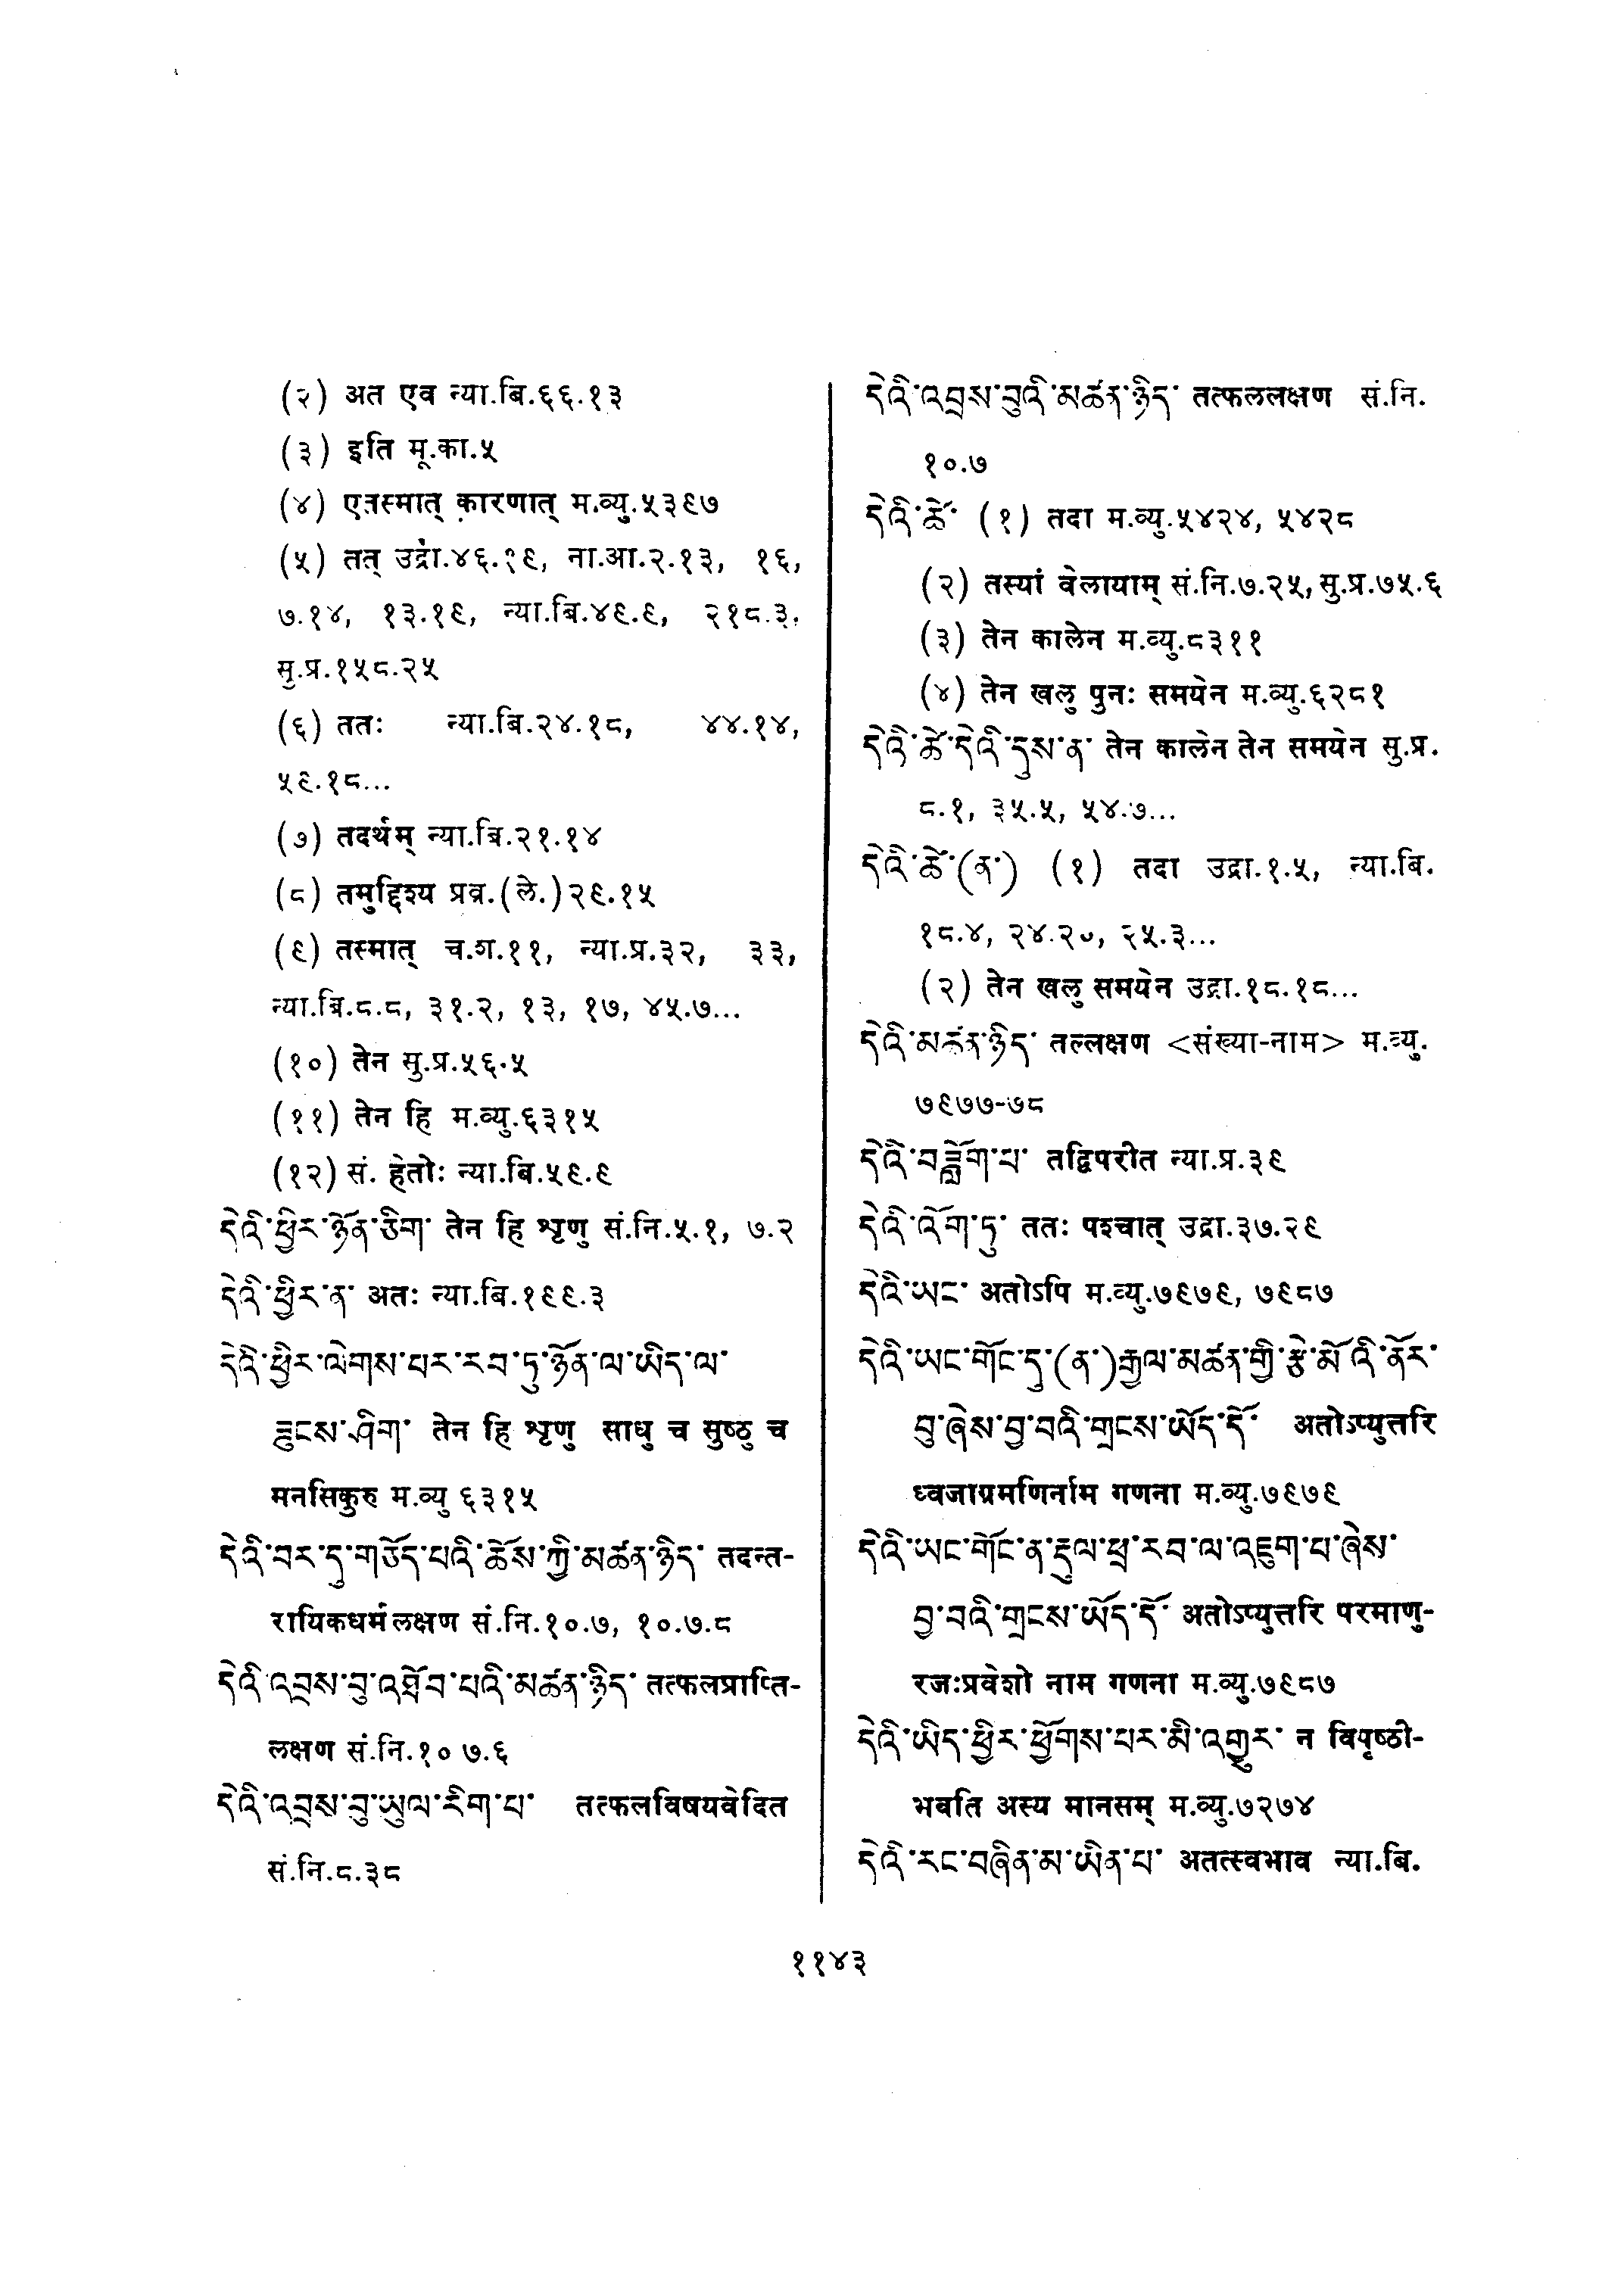 (२) अत एव न्या.बि.६६.१३
(३) इति मू.का.५
(४) एतस्मात् कारणात् म.व्यु.५३९७
(५) तत् उद्रा.४६.१९, ना.आ.२.१३, १६,
७.१४, १३.१९, न्या.बि.४९.९, २१८.३,
सु.प्र.१५८.२५
(६) ततः न्या.बि.२४.१८, ४४.१४,
५९.१८...
(७) तदर्थम् न्या.बि.२१.१४
(८) तमुद्दिश्य प्रव्र.(ले.)२९.१५
(९) तस्मात् च.श.११, न्या.प्र.३२, ३३,
न्या.बि.८.८, ३१.२, १३, १७, ४५.७...
(१०) तेन सु.प्र.५६.५
(११) तेन हि म.व्यु.६३१५
(१२) सं. हेतोः न्या.बि.५९.९
དེའི་ཕྱིར་ཉོན་ཅིག་ तेन हि शृणु सं.नि.५.१, ७.२
དེའི་ཕྱིར་ན་ अतः न्या.बि.१९९.३
དེའི་ཕྱིར་ལེགས་པར་རབ་ཏུ་ཉོན་ལ་ཡིད་ལ་
ཟུངས་ཤིག་ तेन हि शृणु साधु च सुष्ठु च
मनसिकुरु म.व्यु ६३१५
དེའི་བར་དུ་གཅོད་པའི་ཆོས་ཀྱི་མཚན་ཉིད་ तदन्त-
रायिकधर्मलक्षण सं.नि.१०.७, १०.७.८
དེའི་འབྲས་བུ་འཐོབ་པའི་མཚན་ཉིད་ तत्फलप्राप्ति-
लक्षण सं.नि.१० ७.६
དེའི་འབྲས་བུ་ཡུལ་རིག་པ་ तत्फलविषयवेदित
सं.नि.८.३८
དེའི་འབྲས་བུའི་མཚན་ཉིད་ तत्फललक्षण सं.नि.
१०.७
དེའི་ཚེ་ (१) तदा म.व्यु.५४२४, ५४२८
(२) तस्यां वेलायाम् सं.नि.७.२५, सु.प्र.७५.६
(३) तेन कालेन म.व्यु.८३११
(४) तेन खलु पुनः समयेन म.व्यु.६२८१
དེའི་ཚེ་དེའི་དུས་ན་ तेन कालेन तेन समयेन सु.प्र.
८.१, ३५.५, ५४.७...
དེའི་ཚེ་(ན་) (१) तदा उद्रा.१.५, न्या.बि.
१८.४, २४.२०, २५.३...
(२) तेन खलु समयेन उद्रा.१८.१८...
དེའི་མཚན་ཉིད་ तल्लक्षण <संख्या-नाम> म.व्यु.
७९७७-७८
དེའི་བཟློག་པ་ तद्विपरीत न्या.प्र.३९
དེའི་འོག་ཏུ་ ततः पश्चात् उद्रा.३७.२९
དེའི་ཡང་ अतोऽपि म.व्यु.७९७९, ७९८७
དེའི་ཡང་གོང་དུ་(ན་)རྒྱལ་མཚན་གྱི་རྩེ་མོ་འི་ནོར་
བུ་ཞེས་བྱ་བའི་གྲངས་ཡོད་དོ་ अतोऽप्युत्तरि
ध्वजाग्रमणिर्नाम गणना म.व्यु.७९७९
དེའི་ཡང་གོང་ན་རྡུལ་ཕྲ་རབ་ལ་འཇུག་པ་ཞེས་
བྱ་བའི་གྲངས་ཡོད་དོ་ अतोऽप्युत्तरि परमाणु-
रजःप्रवेशो नाम गणना म.व्यु.७९८७
དེའི་ཡིད་ཕྱིར་ཕྱོགས་པར་མི་འགྱུར་ न विपृष्ठी-
भवति अस्य मानसम् म.व्यु.७२७४
དེའི་རང་བཞིན་མ་ཡིན་པ་ अतत्स्वभाव न्या.बि.
११४३